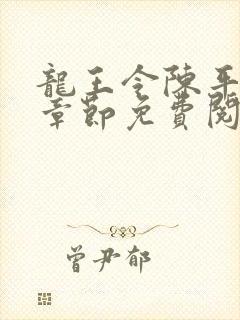 龍王令陳平
章節免費閱
曾尹郁